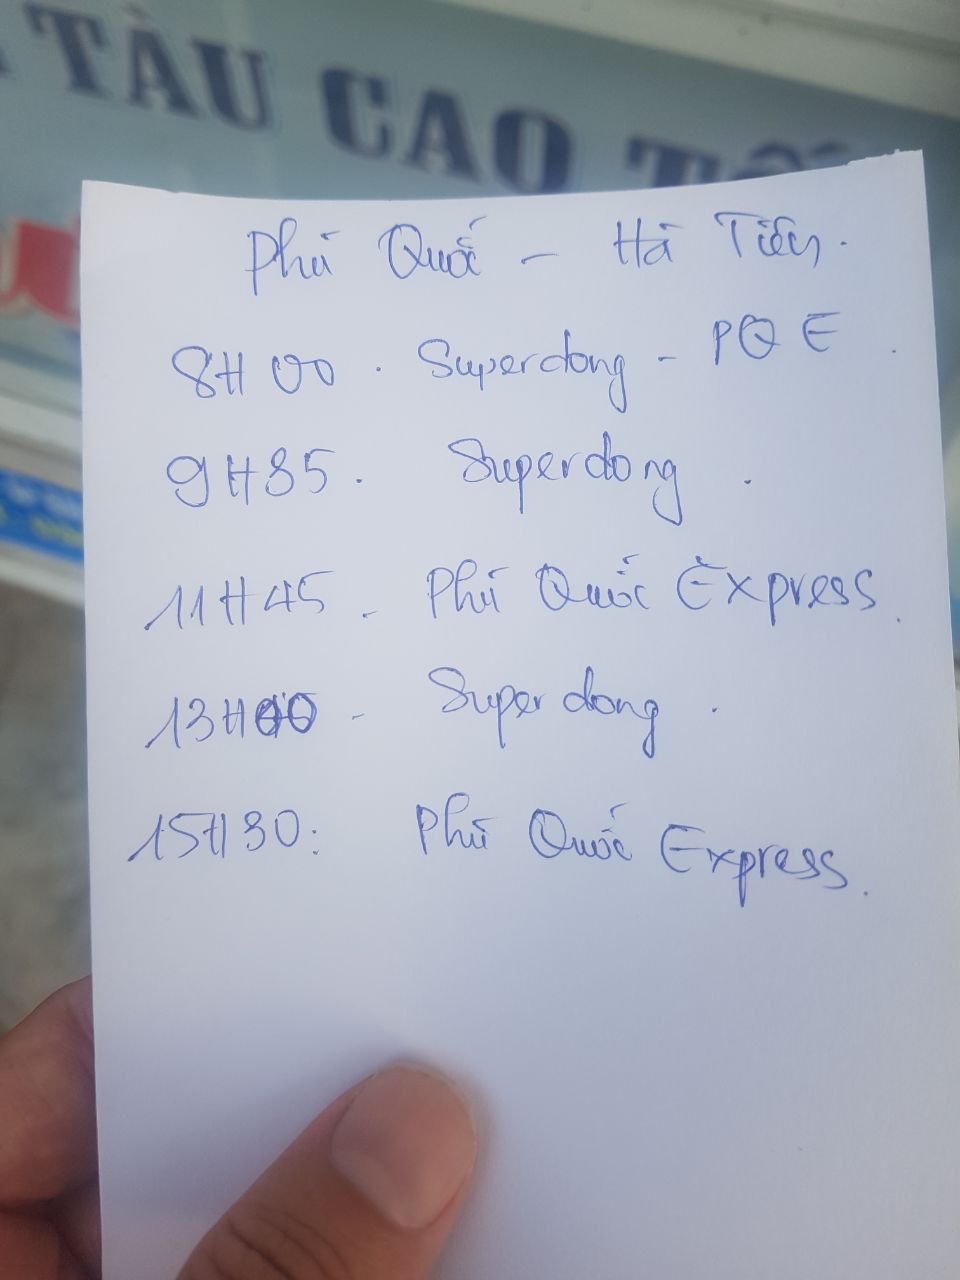 TÀU CAO TỐ
Phú Quốc - Hà Tiên.
8H00. Superdong - PQE.
9H35. Superdong.
11H45 - Phú Quốc Express.
13H00 - Superdong.
15H30: Phú Quốc Express.